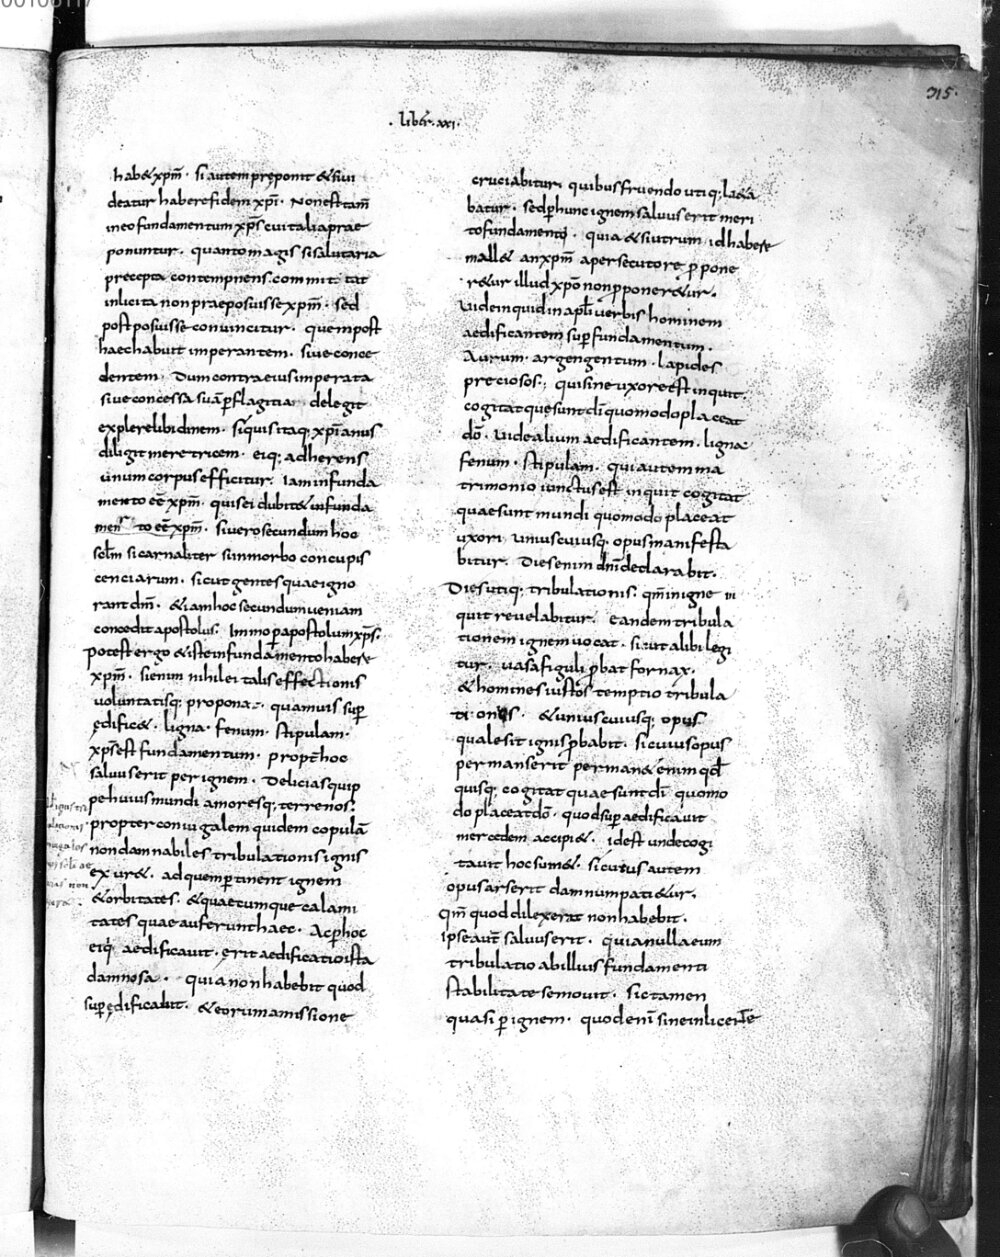 315.
. liber . xxi .
hab& xp̄m . si autem preponit & si ui
deatur habere fidem xp̄i . Non est tam̄
in eo fundamentum xp̄s cui talia prae
ponuntur . quanto magis si salutaria
precepta contempnens . commit tat
inlicita non praeposuisse xp̄m . sed
post posuisse conuincitur . quem post
haec habuit imperantem . siue conce
dentem . Dum contra eius imperata
siue concessa sua p̄ flagitia delegit
explere libidinem . si quis itaq; xp̄ianus
diligit meretricem . eiq; adherens
unum corpus efficitur . Iam in funda
mento eē xp̄m . quis ei dubit& in funda
men to eē xp̄m . si uero secundum hoc
sclm̄ si carnaliter si in morbo concupis
cenciarum . sicut gentes quae igno
rant dm̄ . & iam hoc secundum ueniam
concedit apostolus . Immo p apostolum xp̄s .
Potest ergo & iste in fundamento habere
xp̄m . si enim nihil ei talis effectionis
uoluntatisq; propona . quamuis sup̄
ędific& . ligna . fenum . stipulam .
xp̄s est fundamentum . propt̄ hoc
saluus erit per ignem . Delicias quip
pe huius mundi amoresq; terrenos .
propter coniugalem quidem copulā
non damnabiles tribulationis ignis
exur& . ad quem p̄tinent ignem
& orbitates . & quaecumque calami
tates quae auferunt haec . Ac p̄ hoc
eiq; aedificauit . erit aedificatio ista
damnosa . quia non habebit quod
sup̄ ędificauit . & eorum amissione
cruciabitur . quibus fruendo utiq; la&a
batur . sed p̄ hunc ignem saluus erit meri
to fundamenti . quia & si utrum id habere
mall& an xp̄m a persecutore p pone
r&ur illud xp̄o non p poner&ur .
Uide inquid in apl̄i uerbis hominem
aedificantem sup̄ fundamentum .
Aurum . argengentum . lapides
preciosos ; qui sine uxore est inquit .
cogitat que sunt dī quomodo placeat
dō . Uide alium aedificantem . ligna
fenum . stipulam . qui autem ma
trimonio iunctus est inquit cogitat
quae sunt mundi quomodo placeat
uxori . uniuscuiusq; opus manifesta
bitur . Dies enim dn̄i declarabit .
Dies utiq; tribulationis . qm̄ in igne in
quit reuelabitur . Eandem tribula
tionem ignem uocat . sicut alibi legi
tur . uasa figuli p̄bat fornax .
& homines iustos temptio tribula
ti onis . & uniuscuiusq; opus
quale sit ignis p̄babit . si cuius opus
permanserit . perman& enim qđ
quisq; cogitat quae sunt dī quomo
do placeat dō . quod sup̄ aedificauit
mercedem accipi& . id est unde cogi
tauit hoc sum& . si cuius autem
opus arserit damnum pati&ur .
qm̄ quod dilexerat non habebit .
ipse aut̄ saluus erit . quia nulla eum
tribulatio ab illius fundamenti
stabilitate semouit . sic tamen
quasi p ignem . quod enī sine inlicente